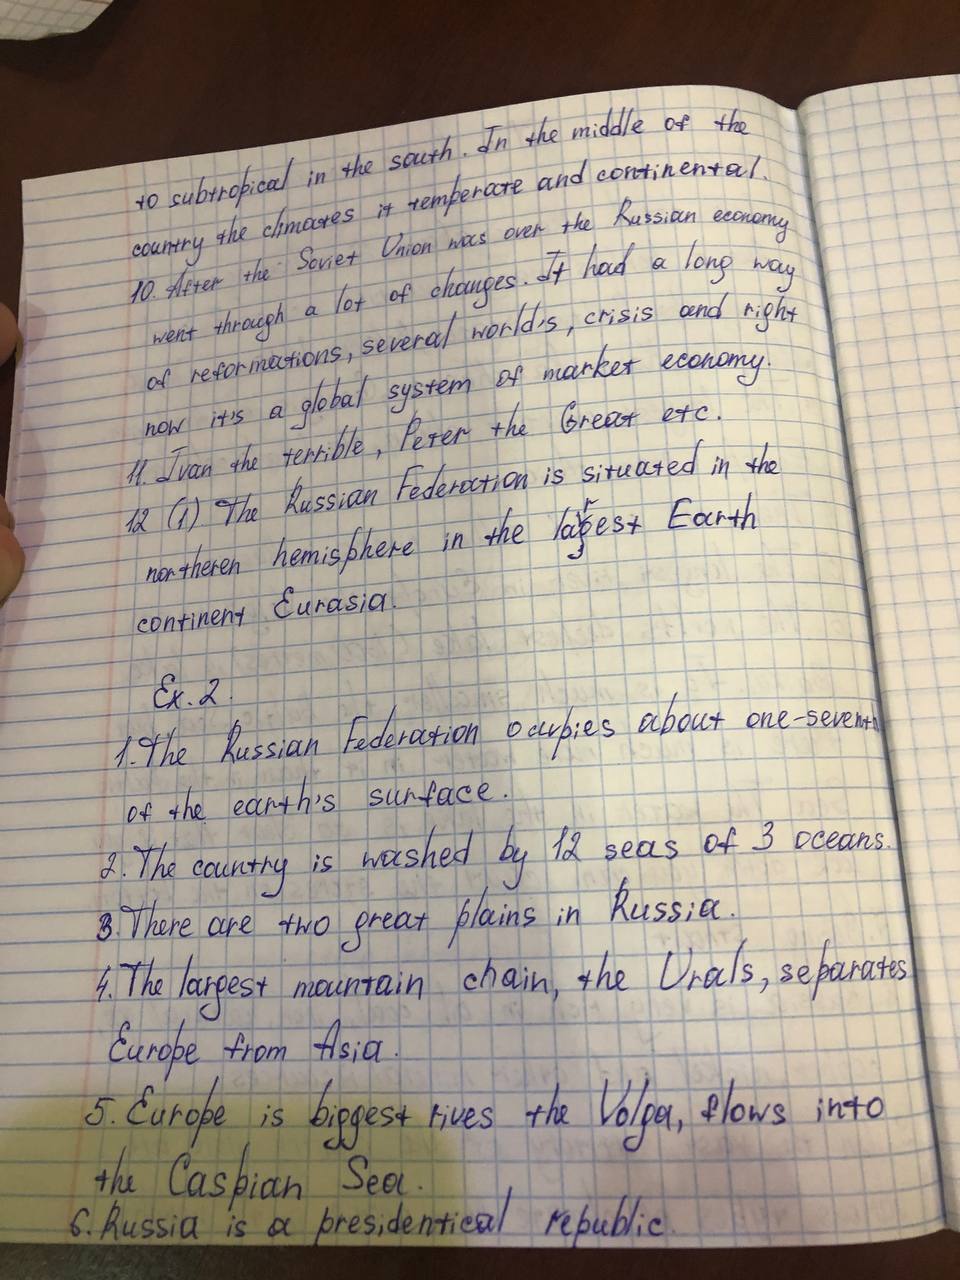 to subtropical in the south. In the middle of the
country the climates it temperate and continental.
10. After the Soviet Union was over the Russian economy
went through a lot of changes. It had a long way
of reformations, several world's, crisis and right
now it's a global system of market economy.
11. Ivan the terrible, Peter the Great etc.
12 (1) The Russian Federation is situated in the
northeren hemisphere in the largest Earth
continent Eurasia.
Ex. 2.
1. The Russian Federation occupies about one-seventh
of the earth's surface.
2. The country is washed by 12 seas of 3 oceans.
3. There are two great plains in Russia.
4. The largest mountain chain, the Urals, separates
Europe from Asia.
5. Europe is biggest rives the Volga, flows into
the Caspian Sea.
6. Russia is a presidentical republic.